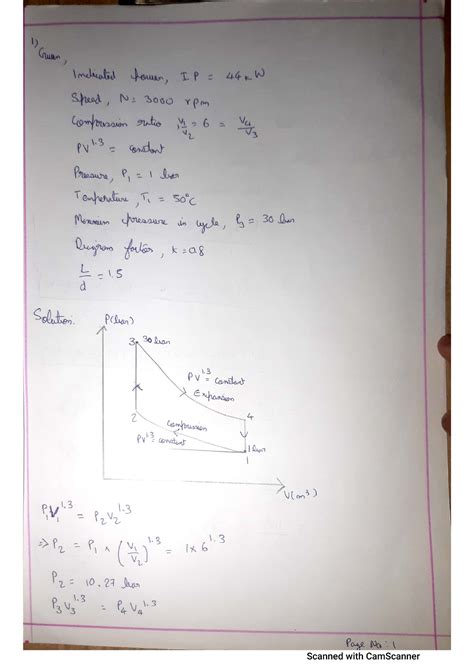 1)
Given,
Indicated power, IP = 44 kW
Speed, N = 3000 rpm
Compression ratio V₁/V₂ = 6 = V₄/V₃
PV^1.3 = constant
Pressure, P₁ = 1 bar
Temperature, T₁ = 50°C
Maximum pressure in cycle, P₃ = 30 bar
Diagram factor, k = 0.8
L/d = 1.5
Solution:
P(bar)
3 30 bar
PV^1.3 = constant
Expansion
4
2
Compression
PV^1.3 = constant
1 bar
1
V(cm³)
P₁V₁^1.3 = P₂V₂^1.3
⇒ P₂ = P₁ × (V₁/V₂)^1.3 = 1×6^1.3
P₂ = 10.27 bar
P₃V₃^1.3 = P₄V₄^1.3
Page No: 1
Scanned with CamScanner